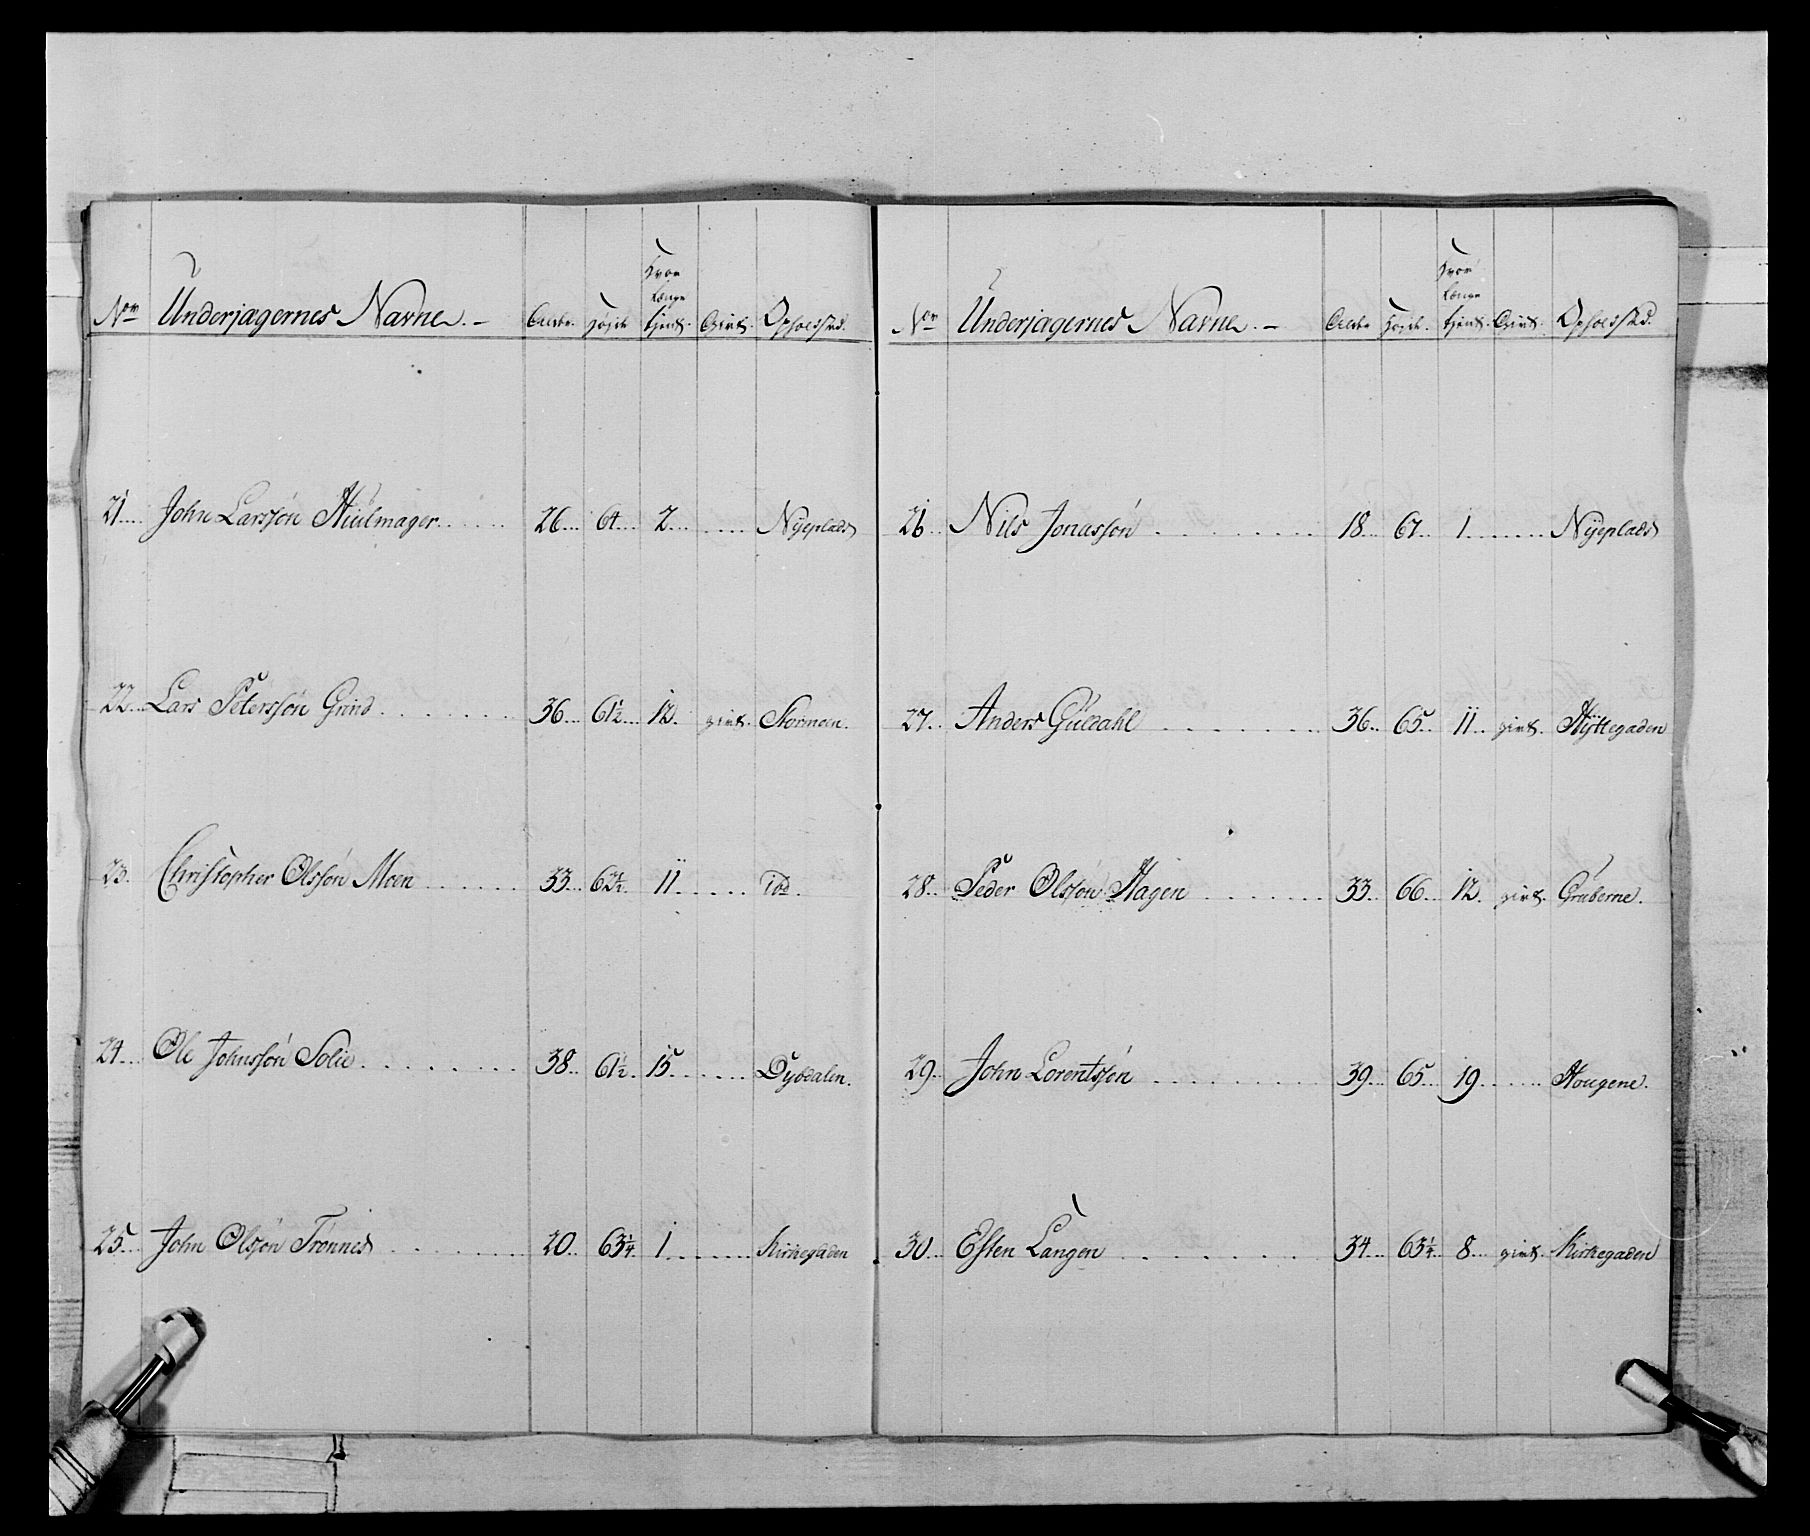 Nor Underjagernes Navne. Alder. Højde Hvor længe tjent. Givt. Opholdsted.
21 John Larssøn Hiulmager 26 64 2 Nÿeplads
22 Lars Peterssøn Grind 36 61½ 12 givt. Stormoen.
23. Christopher Olssøn Moen 33 62½ 11 ibd.
24 Ole Johnssøn Solie 38 61½ 15 Dybdalen.
25 John Olssøn Trønnes 20 63¼ 1 Kirkegaden
Nor Underjagernes Navne. Alder Højde. Hvor længe tjent. Givt. Opholdsted.
26 Nils Jonassøn 18 67 1 Nÿeplads
27 Anders Guldahl 36 65 11 givt. Hÿttegaden
28 Peder Olssøn Hagen 33 66 12 givt. Gruberne.
29 John Lorentssøn 39 65 19 Hougene.
30 Esten Langen 34 63¼ 8 givt. Kirkegaden